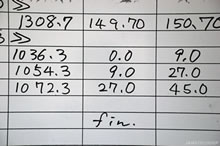 ≫
1308.7 149.70 150.70
≫
1036.3 0.0 9.0
1054.3 9.0 27.0
1072.3 27.0 45.0
fin.